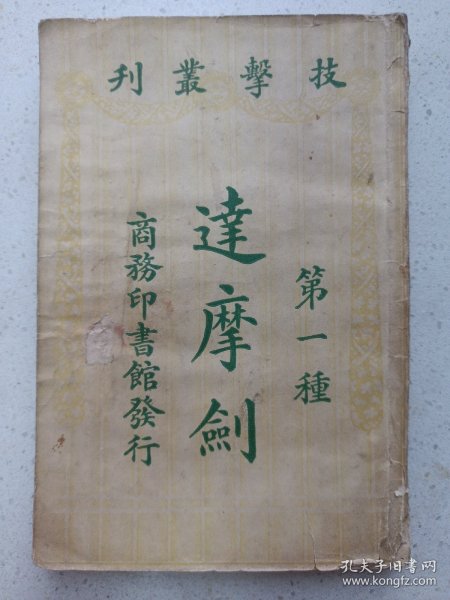 技擊叢刊
第一種
達摩劍
商務印書館發行
孔夫子旧书网
www.kongfz.com